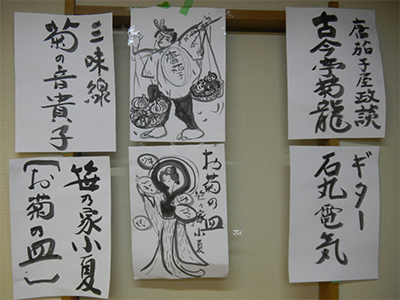 唐茄子屋政談
古今亭菊龍
唐茄子
三味線
菊の音貴子
ギター
石丸電気
お菊の皿
笹乃家小夏
笹乃家小夏
「お菊の皿」